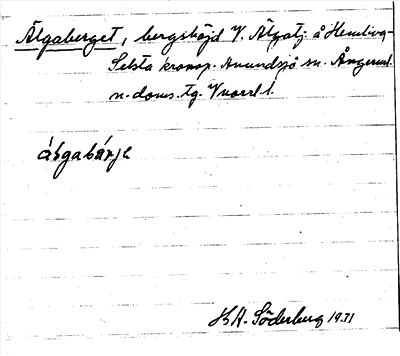 Älgaberget, bergshöjd V. Älgatj. å Hemling-
Selsta kronop. Anundsjö sn. Ångerml.
n. doms. tg.
álgabárje
H A. Söderberg 1931